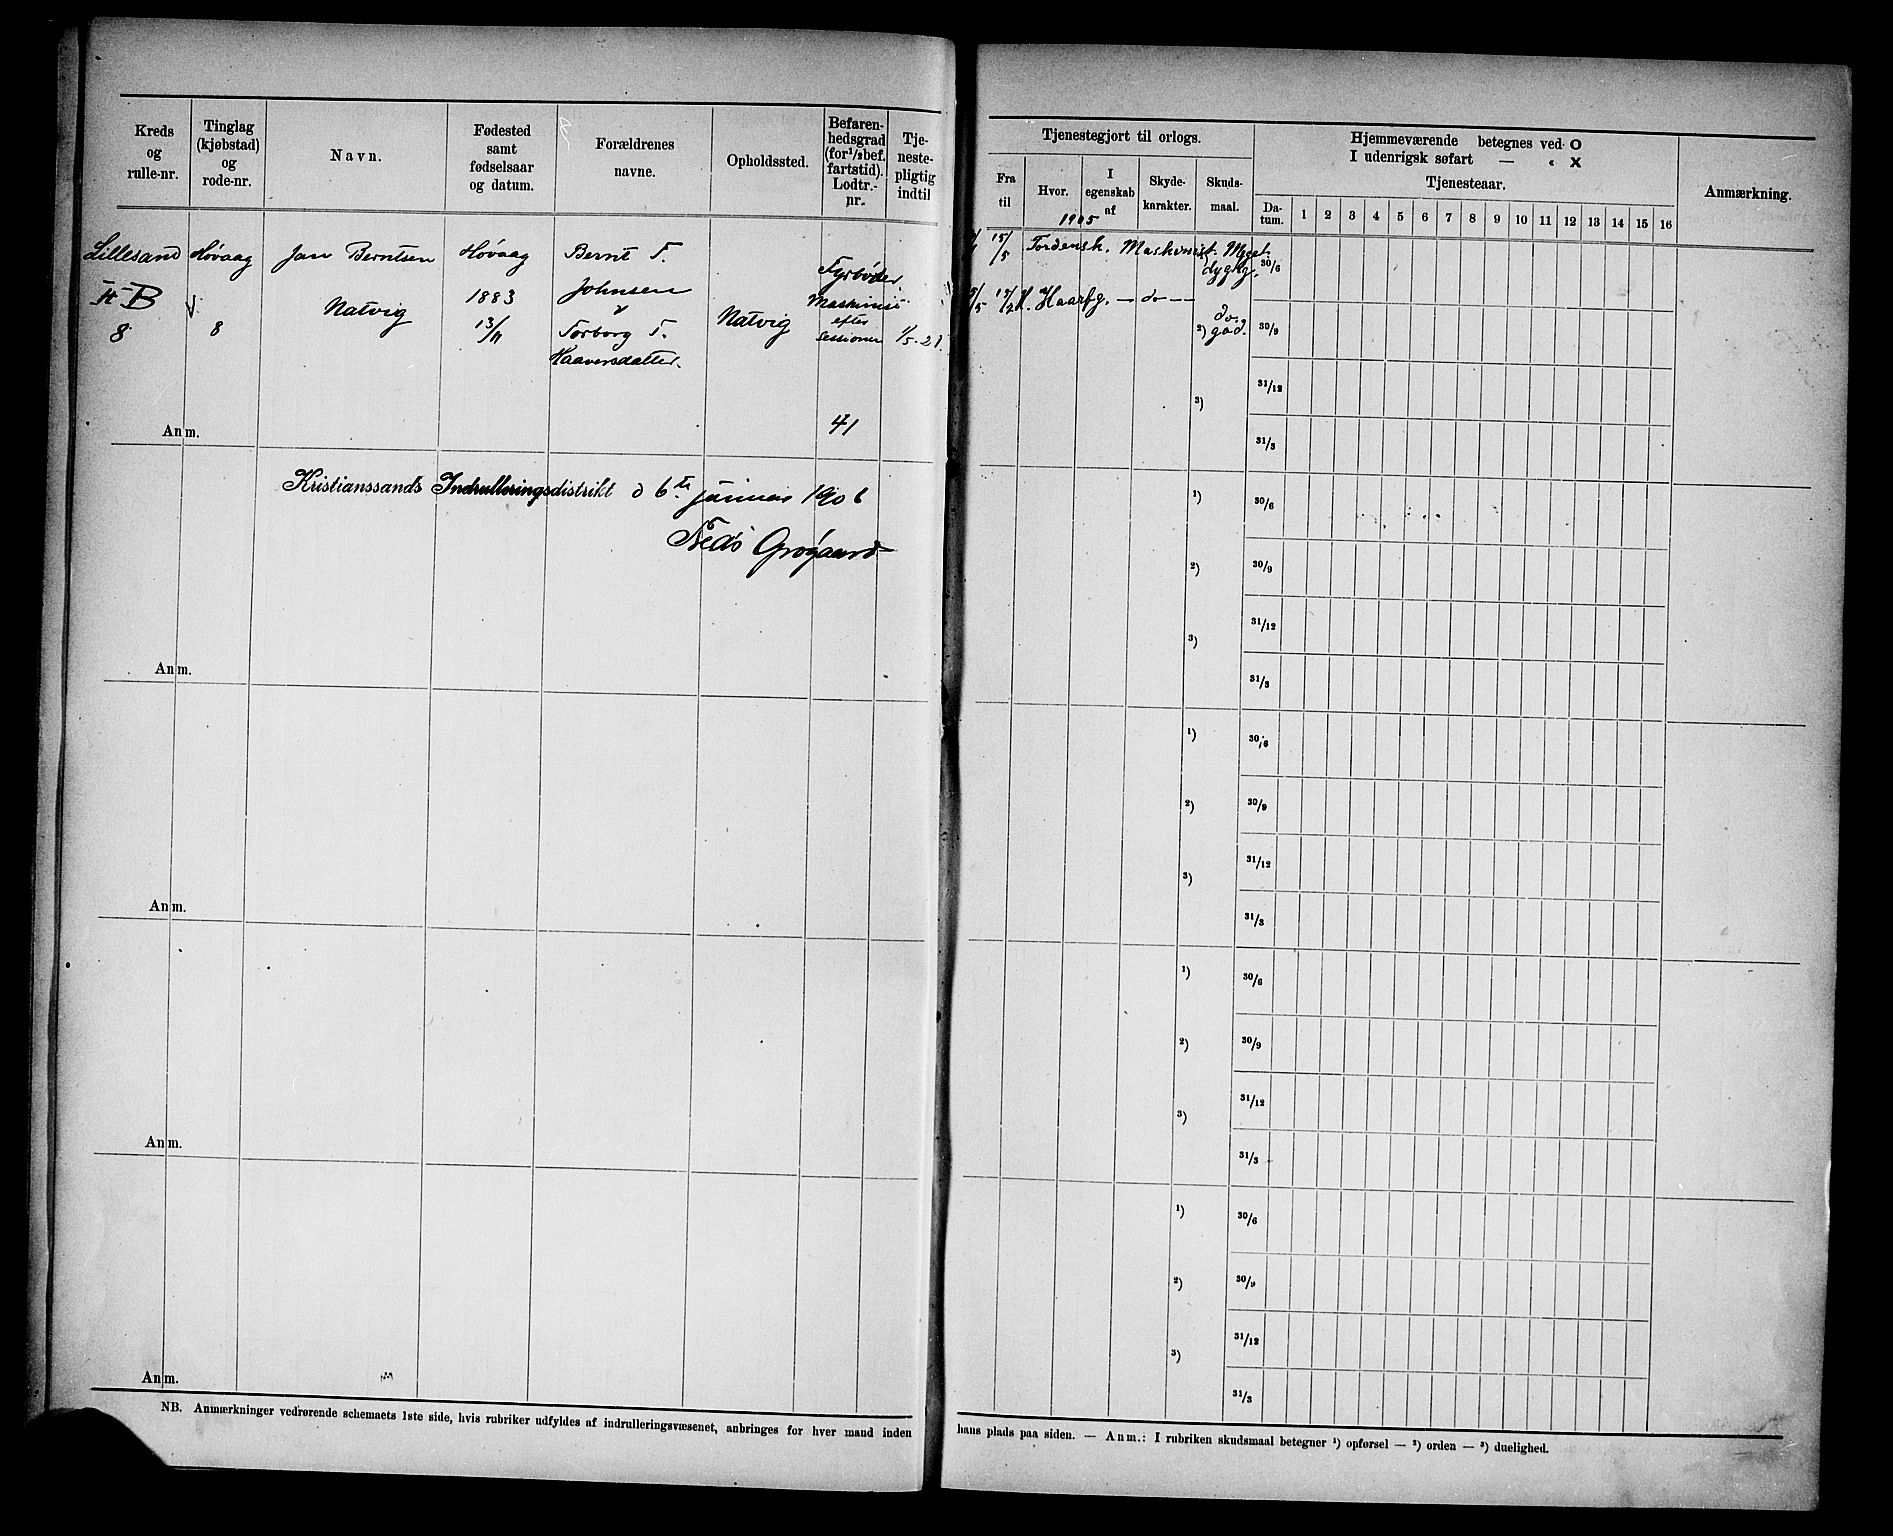 Kreds og rulle-nr.
Tinglag (kjøbstad) og rode-nr.
Navn.
Fødested samt fødselsaar og datum.
Forældrenes navne.
Opholdssted.
Befaren-hedsgrad (for 1/2 bef. fartstid). Lodtr.-nr.
Tje-neste-pligtig indtil
Tjenestegjort til orlogs.
Fra til
Hvor.
I egenskab af
Skyde-karakter.
Skuds-maal.
Hjemmeværende betegnes ved O
I udenrigsk søfart — « X
Tjenesteaar.
Da-tum. 1 2 3 4 5 6 7 8 9 10 11 12 13 14 15 16
Anmærkning.
1905
Lillesand
B
8
Høvaag
8
Jan Berntsen
Natvig
Høvaag
1883
13/11
Bernt T.
Johnsen
Torborg T.
Haaversdatter.
Natvig
Fyrbøder.
Maskinist
efter
sessionen
41
1/5-21.
15/5 Tordensk. Maskinist. Meget
dygtig.
H. Haarfg. — do —
do.
2) god.
3)
30/6
30/9
31/12
31/3
Anm.
Kristianssands Indrulleringsdistrikt d 6te januar 1906
Grøgaard
1)
2)
3)
30/6
30/9
31/12
31/3
Anm.
1)
2)
3)
30/6
30/9
31/12
31/3
Anm.
1)
2)
3)
30/6
30/9
31/12
31/3
Anm.
1)
2)
3)
30/6
30/9
31/12
31/3
Anm.
NB. Anmærkninger vedrørende schemaets 1ste side, hvis rubriker udfyldes af indrulleringsvæsenet, anbringes for hver mand inden
hans plads paa siden. — Anm.: I rubriken skudsmaal betegner 1) opførsel — 2) orden — 3) duelighed.